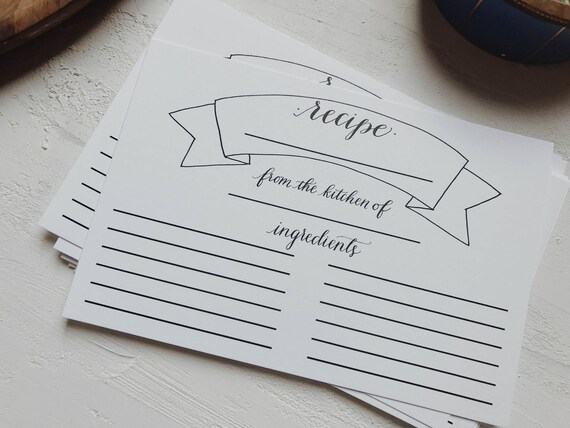 ·recipe·
from the kitchen of
ingredients